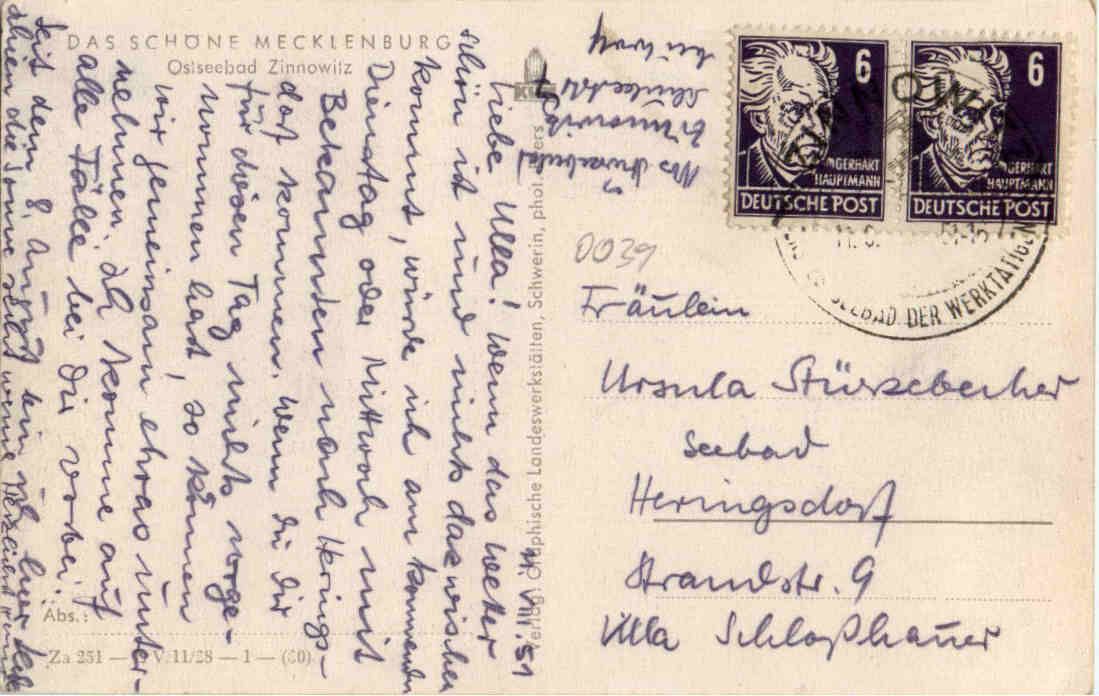 DAS SCHÖNE MECKLENBURG
Ostseebad Zinnowitz
11.VIII.51
Liebe Ulla! Wenn das Wetter
schön ist und nichts dazwischen
kommt, würde ich am kommenden
Dienstag oder Mittwoch mit
Bekannten nach Herings-
dorf kommen. Wenn du dir
für diesen Tag nichts vorge-
nommen hast, so können
wir gemeinsam etwas unter-
nehmen. Ich komme auf
alle Fälle bei Dir vorbei.
Seit dem 8. August bin ich hier
die Sonne
Zinnowitz
Verlag: Graphische Landeswerkstätten, Schwerin, phot.
Abs.:
Za 251 — V/11/28 — 1 — (80)
6
GERHART
HAUPTMANN
DEUTSCHE POST
6
GERHART
HAUPTMANN
DEUTSCHE POST
ZINNOWITZ
SEEBAD DER WERKTÄTIGEN
0039
Fräulein
Ursula Stürzebecher
Seebad
Heringsdorf
Strandstr. 9
Villa Schloßhauer